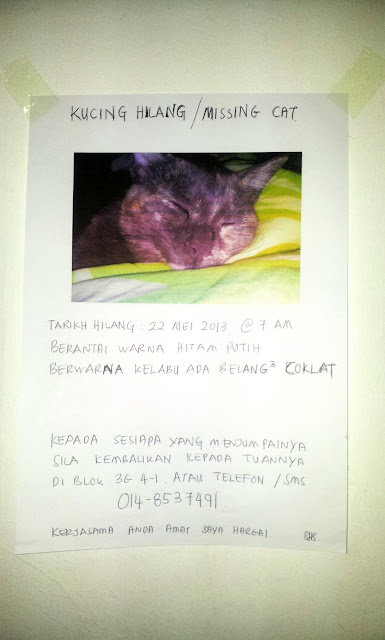 KUCING HILANG / MISSING CAT.
TARIKH HILANG : 22 MEI 2013 @ 7 AM
BERANTAI WARNA HITAM PUTIH
BERWARNA KELABU ADA BELANG² COKLAT
KEPADA SESIAPA YANG MENJUMPAINYA
SILA KEMBALIKAN KEPADA TUANNYA
DI BLOK 3G 4-1. ATAU TELEFON / SMS
014-8537491
KERJASAMA ANDA AMAT SAYA HARGAI.